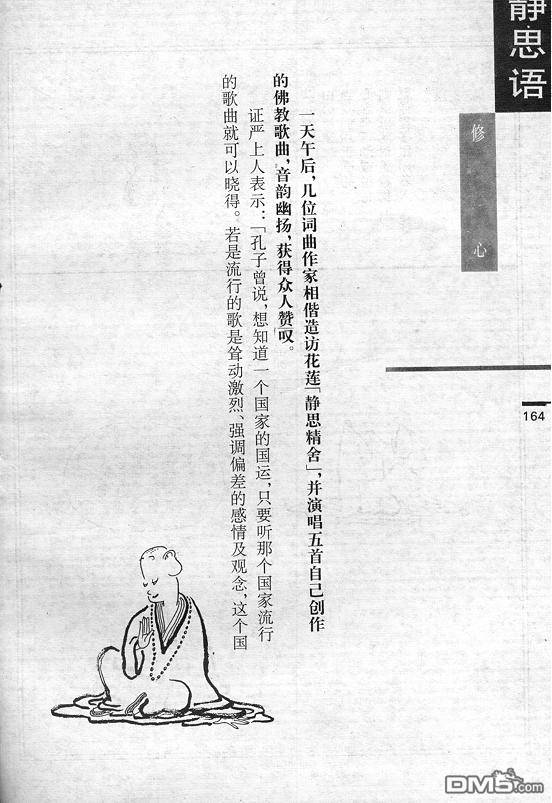 静思语
修心
164
一天午后，几位词曲作家相偕造访花莲「静思精舍」，并演唱五首自己创作
的佛教歌曲，音韵幽扬，获得众人赞叹。
证严上人表示：「孔子曾说，想知道一个国家的国运，只要听那个国家流行
的歌曲就可以晓得。若是流行的歌是耸动激烈、强调偏差的感情及观念，这个国
DM5.com